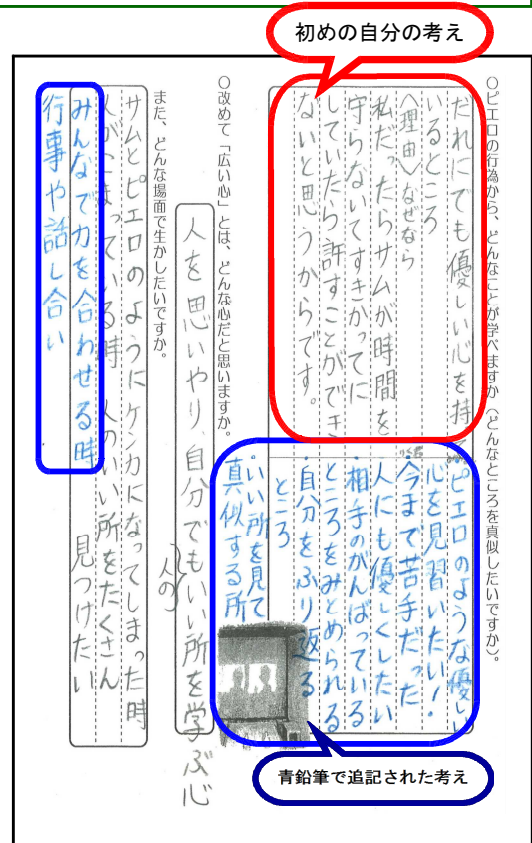 初めの自分の考え
○ピエロの行為から、どんなことが学べますか(どんなところを真似したいですか)。
だれにでも優しい心を持
いるところ
〈理由〉なぜなら
私だったらサムが時間を
守らないてすきかってに
していたら許すことができ
ないと思うからです。
ピエロのような優しい
心を見習いたい!
今まで苦手だった
人にも優しくしたい
・相手のがんばっている
ところをみとめられる
・自分をふり返る
ところ
・いい所を見て
真似する所
青鉛筆で追記された考え
○改めて「広い心」とは、どんな心だと思いますか。
人を思いやり自分でもいい所を学ぶ心
人の
また、どんな場面で生かしたいですか。
サムとピエロのようにケンカになってしまった時
人がこまっている時 人のいい所をたくさん
見つけたい
みんなで力を合わせる時
行事や話し合い